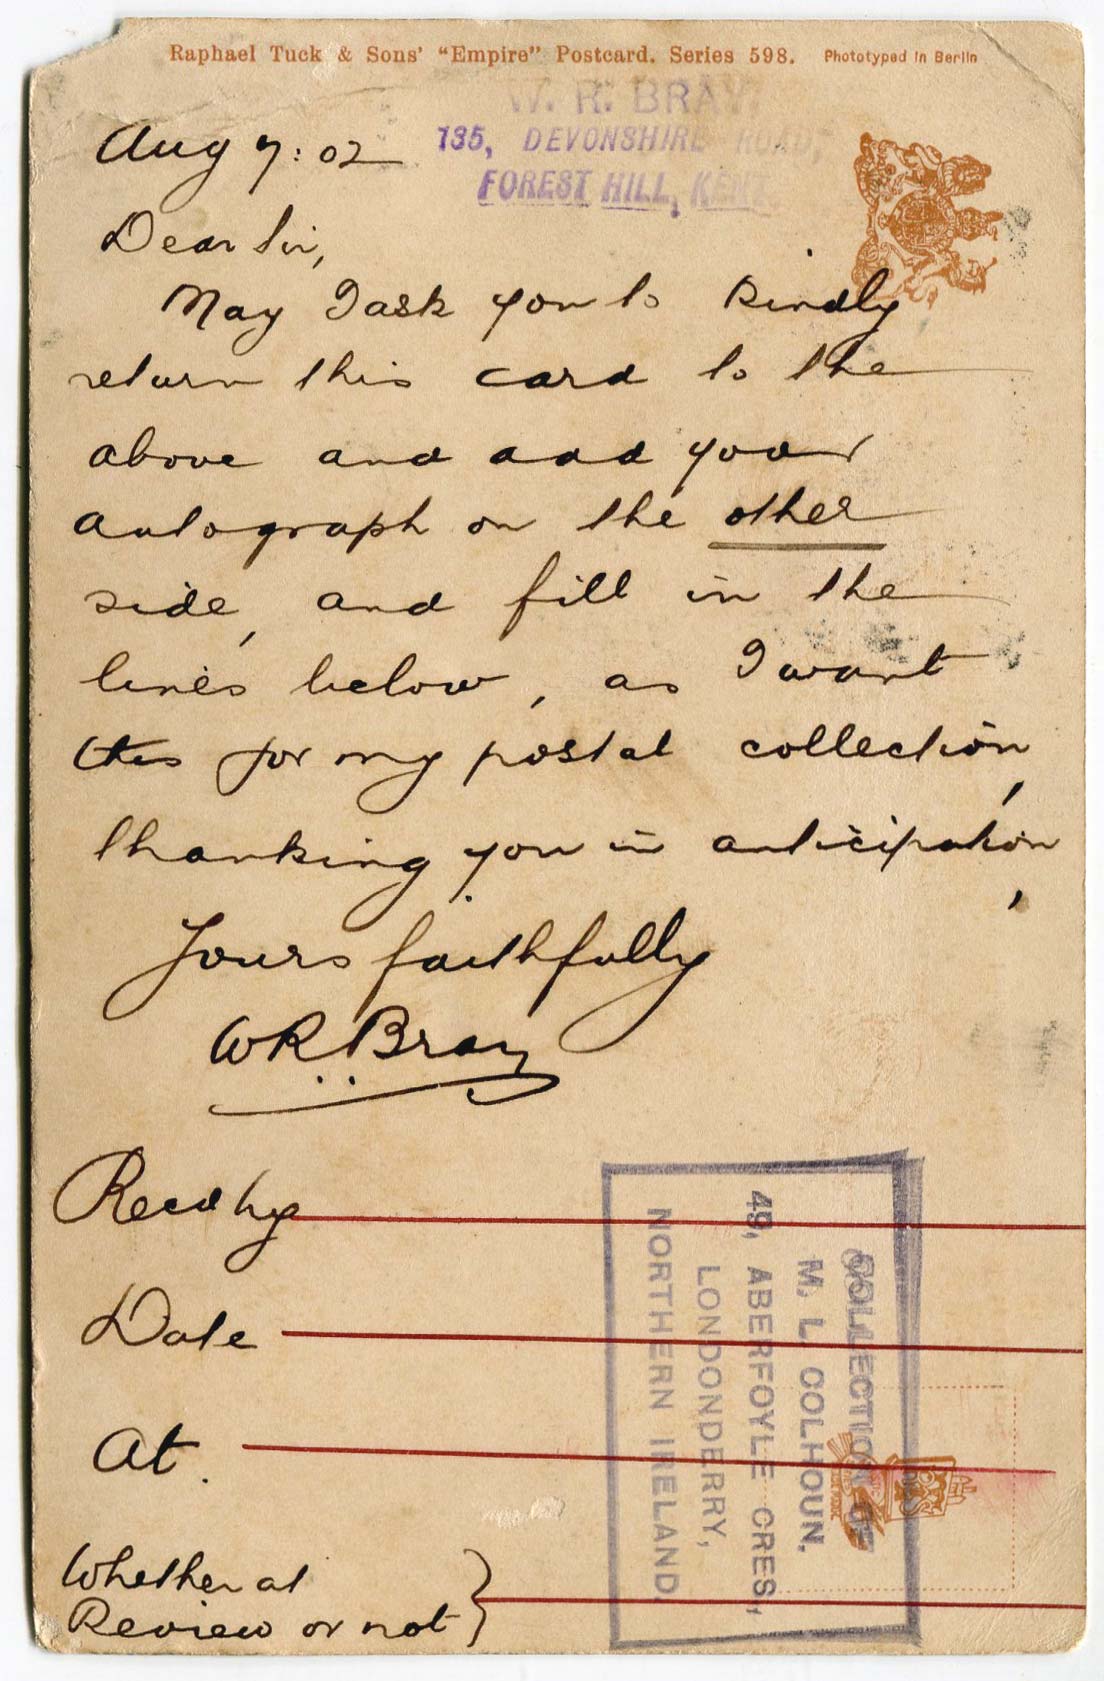 Raphael Tuck & Sons' "Empire" Postcard. Series 598. Phototyped in Berlin
W. R. BRAY.
135, DEVONSHIRE ROAD,
FOREST HILL, KENT.
Aug 7: 02
Dear Sir,
May I ask you to kindly
return this card to the
above and add your
autograph on the other
side, and fill in the
lines below, as I want
this for my postal collection,
thanking you in anticipation,
Yours faithfully
WR Bray
Recd by
Date
At.
Whether at
Review or not
COLLECTION OF
M. L. COLHOUN.
49, ABERFOYLE CRES.,
LONDONDERRY,
NORTHERN IRELAND.